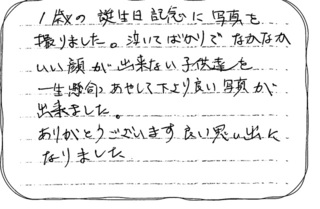 1歳の誕生日記念に写真を
撮りました。泣いてばかりでなかなか
いい顔が出来ない子供達を
一生懸命あやして下より良い写真が
出来ました。
ありがとうございます良い思い出に
なりました